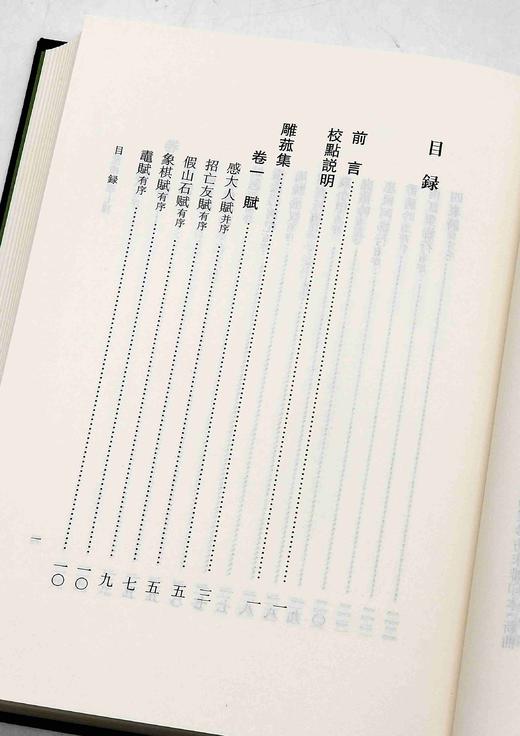 目録
前言……一
校點説明……一
雕菰集……三
卷一　賦……五
感大人賦并序……五
招亡友賦有序……七
假山石賦有序……九
象棋賦有序……一〇
賦有序……一〇
目録
一